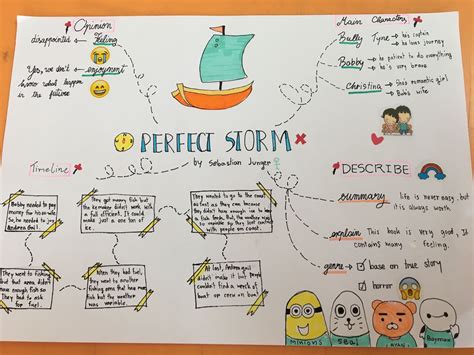 Opinion
disappointed
Feeling
Yes, we don't
enjoyment
know what happen
in the future
Main Characters
Bully Tyne → his captain
→ he loves journey
Bobby → he patient to do everything
→ he's very brave
Christina → She's romantic girl
→ Bob's wife
PERFECT STORM
by Sebastian Junger
Timeline
Bobby needed to pay
money for his son
so, he needed to joy
Andrea Gail
They got money fish but
the icemaker didn't work with
a full efficient. It could
make just a one ton of
ice.
They wanted to go to the coast
as fast as they can because
they didn't have enough ice to
keep fish
with people on coast.
They went to fishing
but that area didn't
have enough fish so
They had to ask
for fuel.
When they had fuel,
they went to another
fishing area that near
with
but the weather
was variable
At last, Andrea gail
didn't make it but people
couldn't find a wreck of
boat or crew at all
DESCRIBE
summary → life is never easy, but
it is always worth.
explain → This book is very good, It
contains many feeling.
genre → base on true story
horror
minions
Seal
RYAN
Baymax